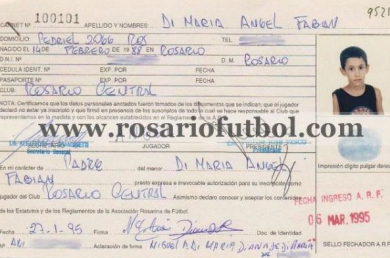 CARNET Nº 100101 APELLIDO Y NOMBRES: DI MARIA ANGEL FABIAN
DOMICILIO: PEDRIEL
NACIDO EL: 14 DE FEBRERO de 1988 EN ROSARIO
D.N.I. Nº D. M. ROSARIO
CEDULA IDENT. Nº EXP. POR FECHA
PASAPORTE Nº EXP. POR FECHA
CLUB ROSARIO CENTRAL
NOTA: Certificamos que los datos personales anotados fueron tomados de los documentos que se indican; que el jugador
declaró no estar ya inscripto y que firmó en presencia de los suscriptos de todo lo cual se hace responsable el Club que
representamos en la medida y con los alcances establecidos en el Reglamento
www.rosariofutbol.com
Secretario General JUGADOR
En mi carácter de PADRE del menor DI MARIA ANGEL
FABIAN presto expresa e irrevocable autorización para su inscripción
jugador del Club ROSARIO CENTRAL Asimismo declaro conocer y aceptar el contenido
de los Estatutos y de los Reglamentos de la Asociación Rosarina de Fútbol.
27-1-95
Fecha Firma Doc. de Identidad
Aclaración de firma MIGUEL A. DI MARIA
Impresión dígito pulgar derecho
FECHA INGRESO A. R. F.
06 MAR. 1995
SELLO FECHADOR A.R.F.